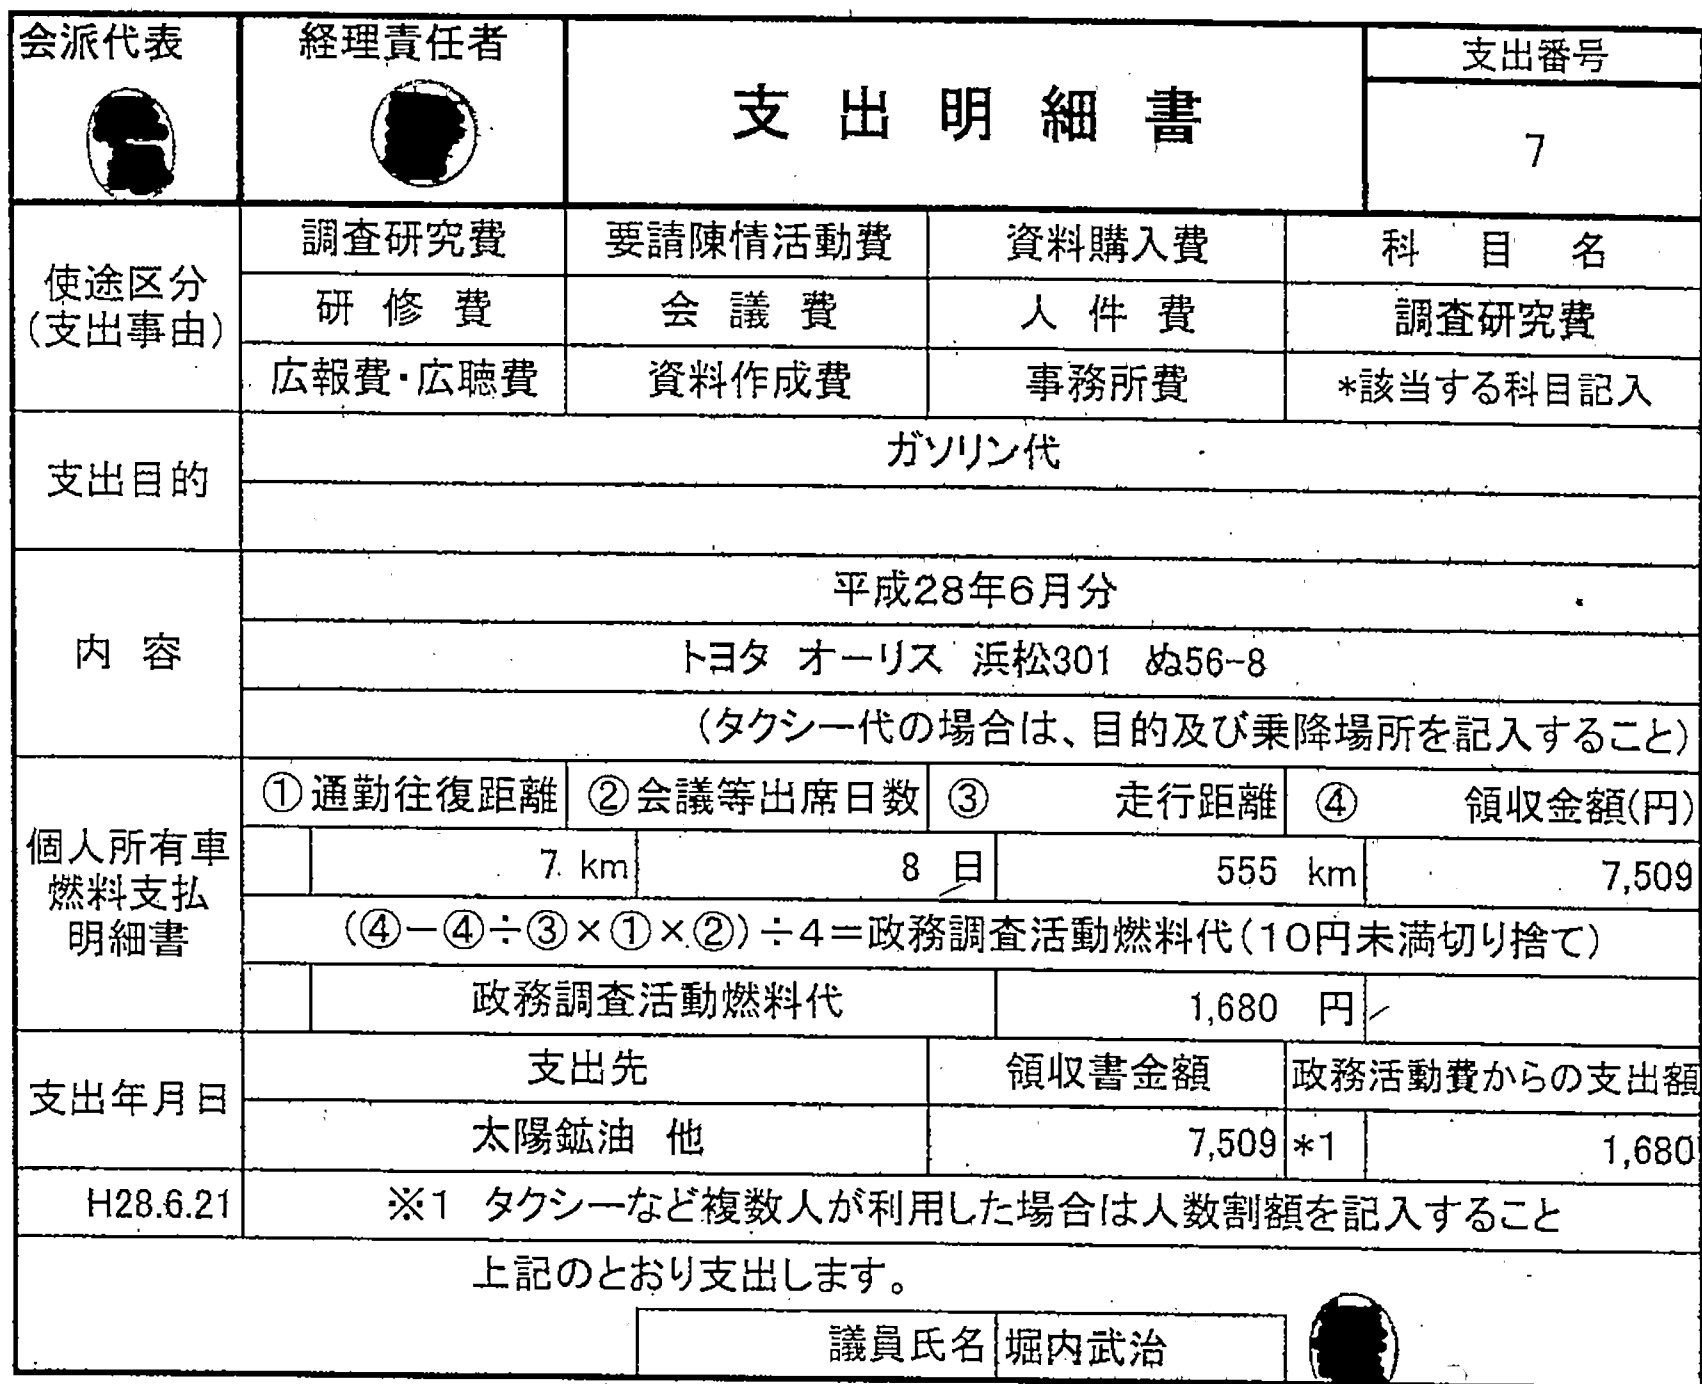 会派代表 経理責任者 支出明細書 支出番号
7
使途区分
(支出事由)
調査研究費 要請陳情活動費 資料購入費 科目名
研修費 会議費 人件費 調査研究費
広報費・広聴費 資料作成費 事務所費 *該当する科目記入
支出目的
ガソリン代
内容
平成28年6月分
トヨタ オーリス 浜松301 ぬ56-8
(タクシー代の場合は、目的及び乗降場所を記入すること)
個人所有車
燃料支払
明細書
①通勤往復距離 ②会議等出席日数 ③ 走行距離 ④ 領収金額(円)
7 km 8 日 555 km 7,509
(④-④÷③×①×②)÷4=政務調査活動燃料代(10円未満切り捨て)
政務調査活動燃料代 1,680 円
支出年月日
支出先 領収書金額 政務活動費からの支出額
太陽鉱油 他 7,509 *1 1,680
H28.6.21 ※1 タクシーなど複数人が利用した場合は人数割額を記入すること
上記のとおり支出します。
議員氏名 堀内武治